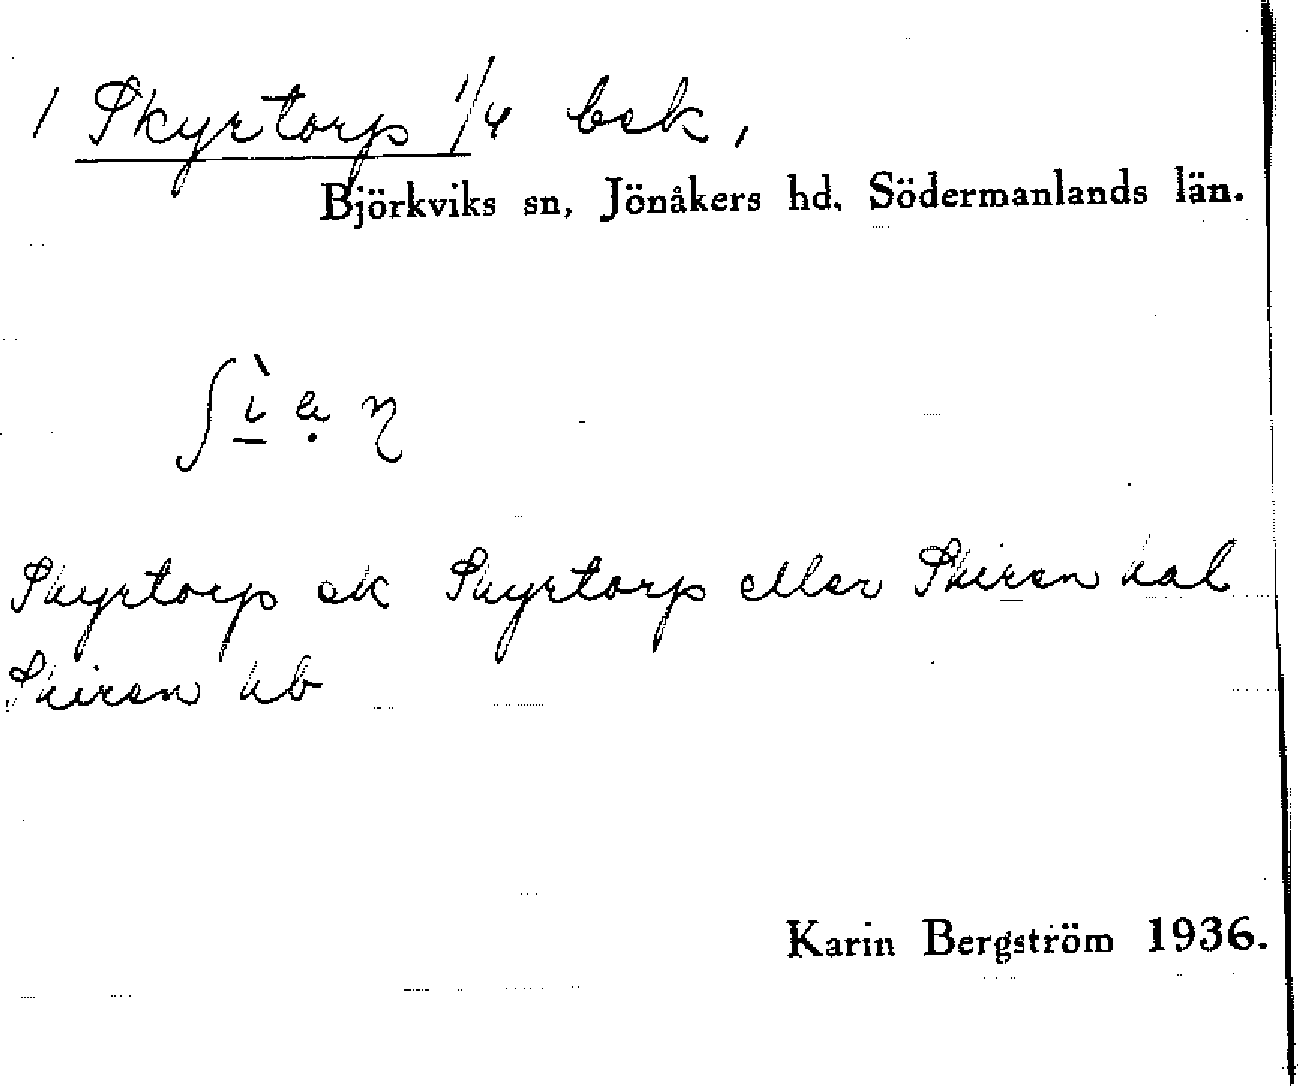 / Skyrtorp 1/4 bsk,
Björkviks sn, Jönåkers hd. Södermanlands län.
Skyrtorp ek Skyrtorp eller Skiren hal
Skiren kb
Karin Bergström 1936.